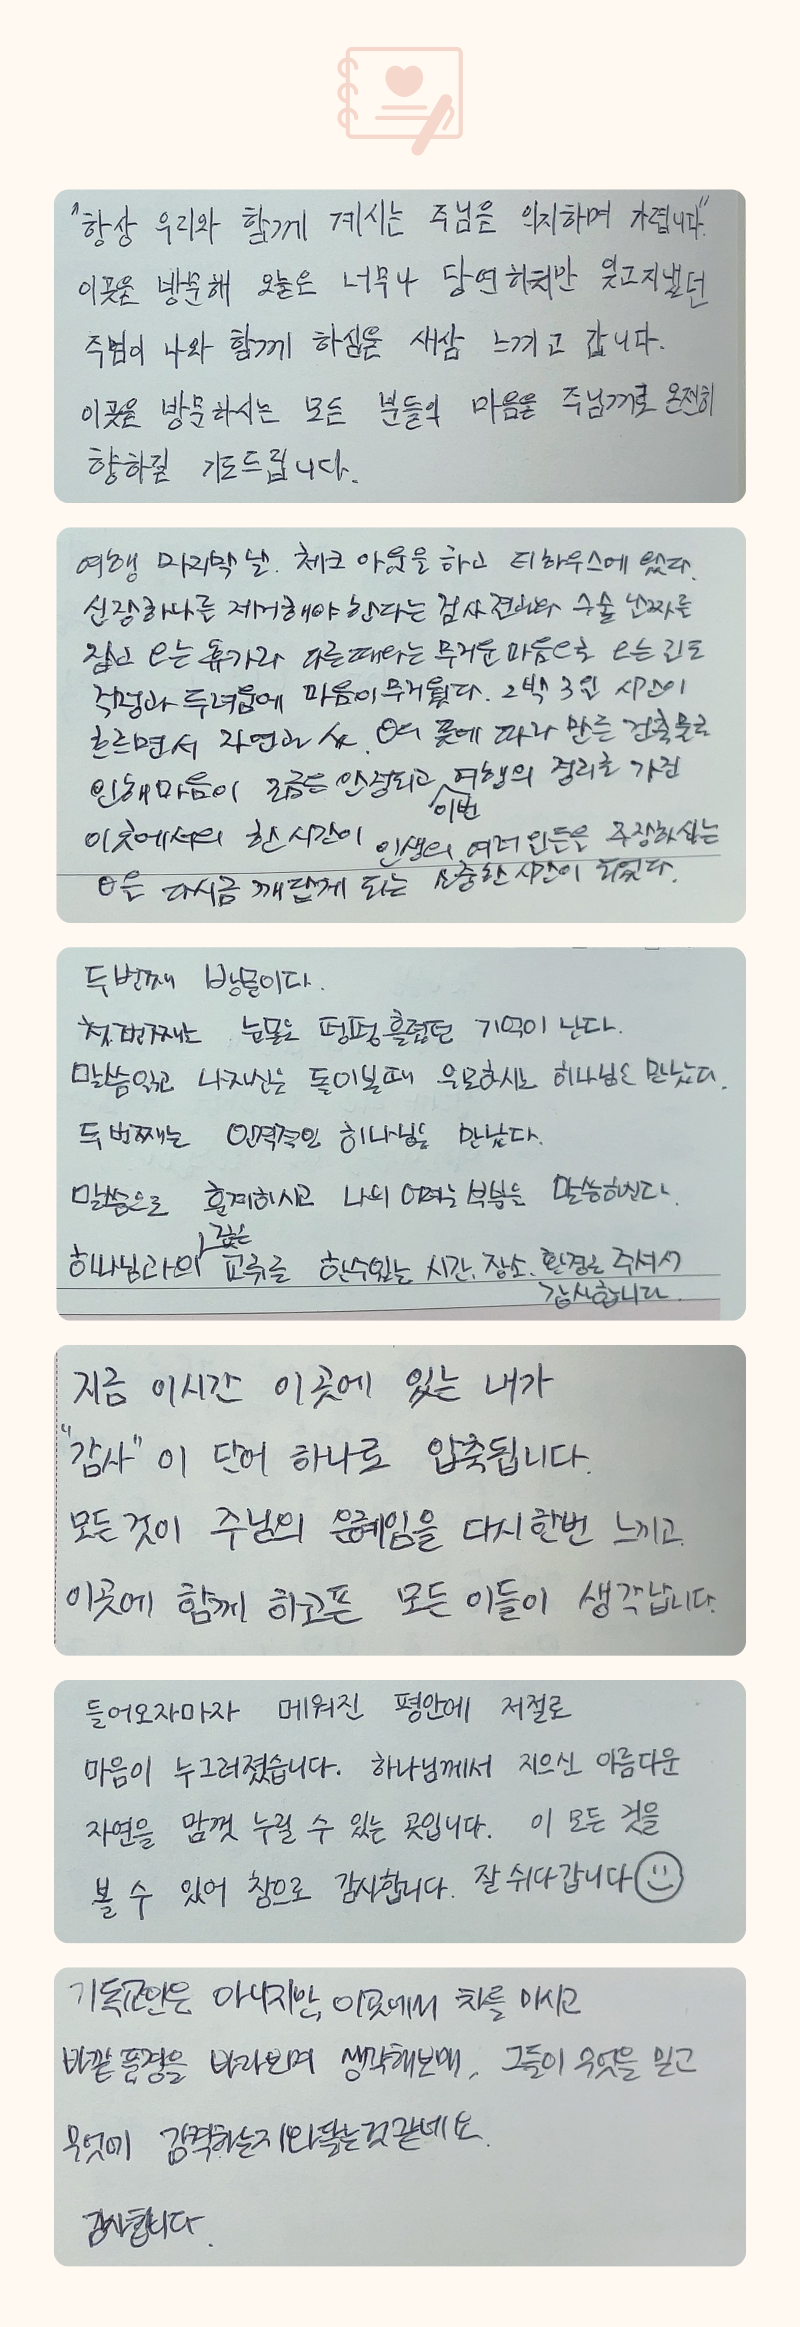 "항상 우리와 함께 계시는 주님을 의지하며 가렵니다."
이곳을 방문해 오늘은 너무나 당연하지만 잊고지냈던
주님이 나와 함께 하심을 새삼 느끼고 갑니다.
이곳을 방문하시는 모든 분들의 마음을 주님께로 온전히
향하길 기도드립니다.
여행 마지막 날. 체크 아웃을 하고 티하우스에 왔다.
신장하나를 제거해야 한다는 검사 결과와 수술 날짜를
잡고 오는 휴가라 다른때와는 무거운 마음으로 오는 길도
걱정과 두려움에 마음이 무거웠다. 2박 3일 시간이
흐르면서 자연과 쉼, 여러 뜻에 따라 만든 건축물로
인해 마음이 조금은 안정되고, 이번 여행의 정리로 가진
이곳에서의 한 시간이 인생의 여러 일들을 주장하시는
분을 다시금 깨닫게 되는 소중한 시간이 되었다.
두번째 방문이다.
첫번째는 눈물을 펑펑 흘렸던 기억이 난다.
말씀읽고 나자신을 돌이볼때 위로하시는 하나님을 만났다.
두번째는 인격적인 하나님을 만났다.
말씀으로 훈계하시고 나의 여려는 부분을 말씀하신다.
하나님과의 깊은 교류를 할수있는 시간, 장소, 환경을 주셔서
감사합니다.
지금 이시간 이곳에 있는 내가
"감사" 이 단어 하나로 압축됩니다.
모든것이 주님의 은혜임을 다시한번 느끼고.
이곳에 함께 하고픈 모든 이들이 생각납니다.
들어오자마자 메워진 평안에 저절로
마음이 누그러졌습니다. 하나님께서 지으신 아름다운
자연을 맘껏 누릴 수 있는 곳입니다. 이 모든 것을
볼 수 있어 참으로 감사합니다. 잘 쉬다갑니다
기독교인은 아니지만, 이곳에서 차를 마시고
바깥 풍경을 바라보며 생각해보매, 그들이 무엇을 믿고
무엇에 감격하는지 와닿는것 같네요.
감사합니다.